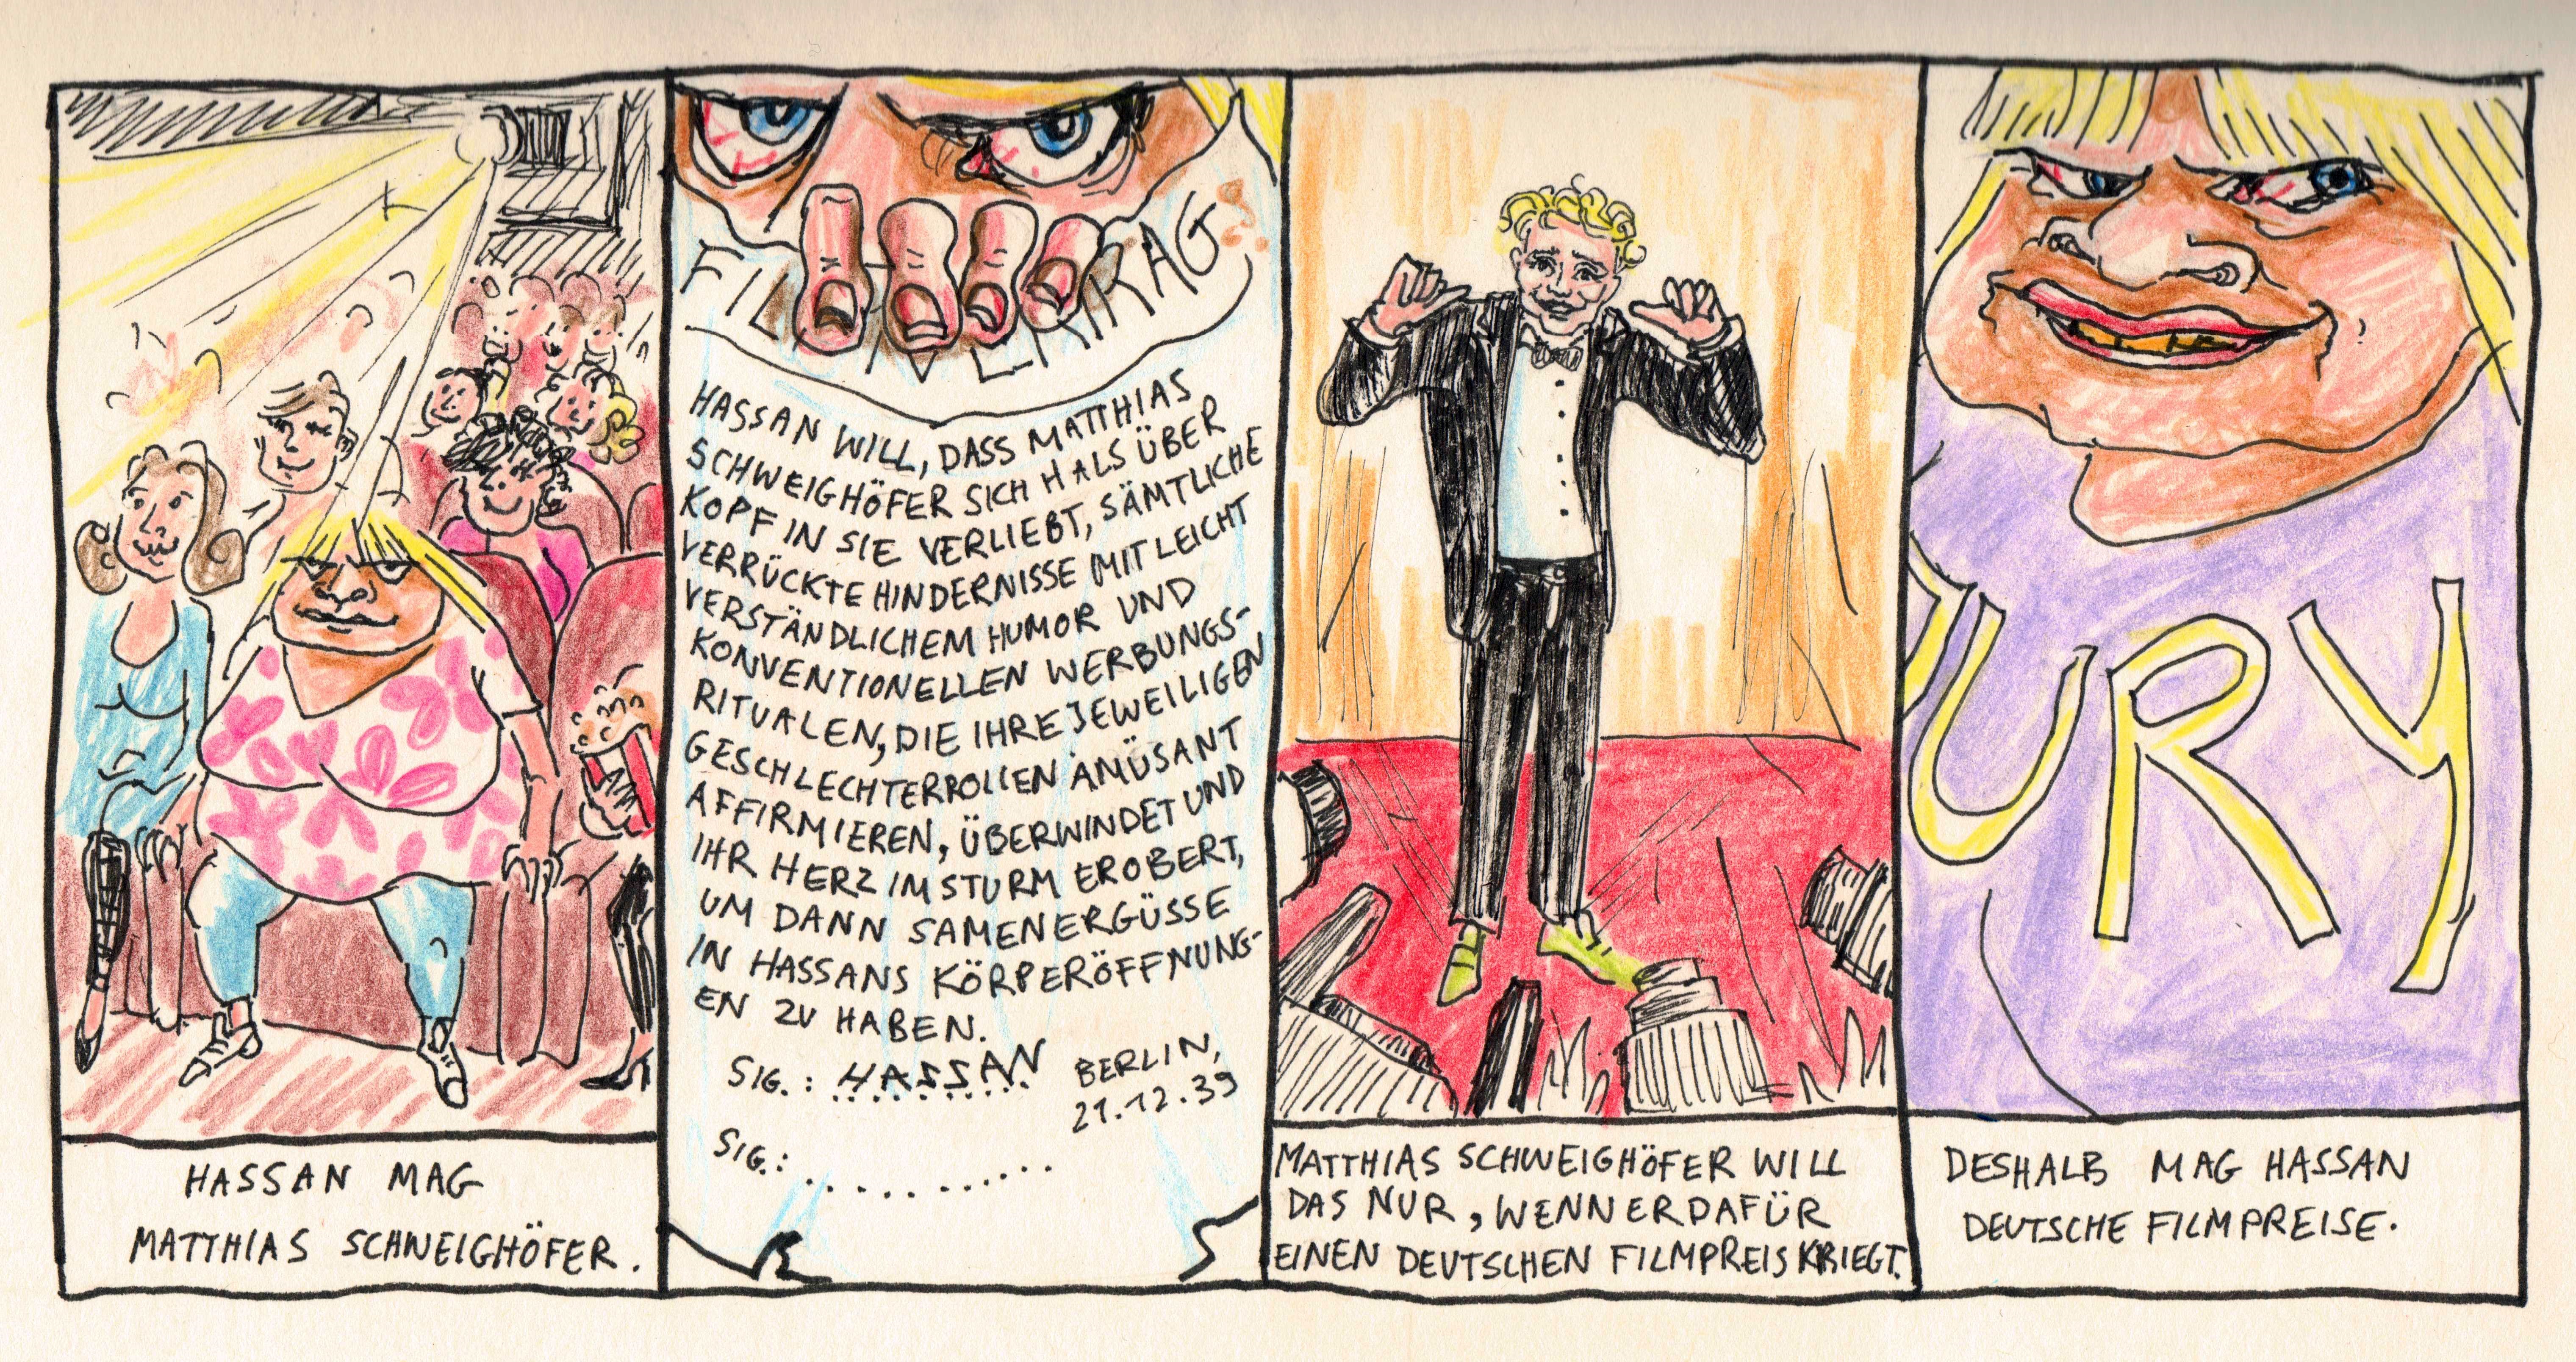 HASSAN MAG
MATTHIAS SCHWEIGHÖFER.
HASSAN WILL, DASS MATTHIAS
SCHWEIGHÖFER SICH HALS ÜBER
KOPF IN SIE VERLIEBT, SÄMTLICHE
VERRÜCKTE HINDERNISSE MIT LEICHT
VERSTÄNDLICHEM HUMOR UND
KONVENTIONELLEN WERBUNGS-
RITUALEN, DIE IHRE JEWEILIGEN
GESCHLECHTERROLLEN AMÜSANT
AFFIRMIEREN, ÜBERWINDET UND
IHR HERZ IM STURM EROBERT,
UM DANN SAMENERGÜSSE
IN HASSANS KÖRPERÖFFNUNG-
EN ZU HABEN.
SIG.: HASSAN
BERLIN,
21.12.39
SIG.: ............
MATTHIAS SCHWEIGHÖFER WILL
DAS NUR, WENN ER DAFÜR
EINEN DEUTSCHEN FILMPREIS KRIEGT.
URY
DESHALB MAG HASSAN
DEUTSCHE FILMPREISE.